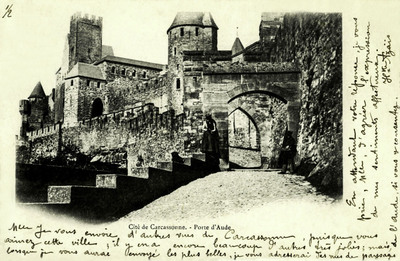 1/2
Cité de Carcassonne. - Porte d'Aude
Mlle Je vous envoie d'autres vues de Carcassonne, puisque vous
aimez cette ville; il y en a encore beaucoup d'autres très jolies; mais,
lorsque je vous aurai envoyé les plus belles, je vous adresserai des vues de paysages
si vous le
En attendant votre réponse je vous
prie, Mlle, d'agréer l'expression
de mes sentiments affectueux